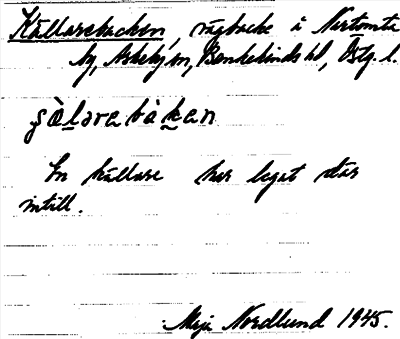 Källarebacken, vägbacke å Nartomta
by, Askeby sn, Bankekinds hd, Östg. l.
En källare har legat där
intill.
Maja Nordlund 1945.